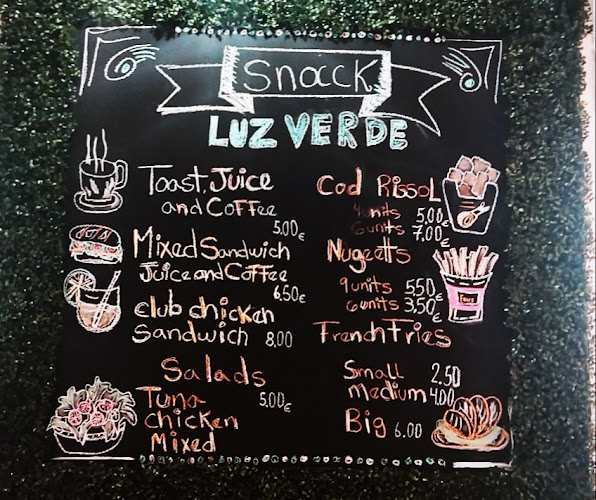 Snack
LUZ VERDE
Toast, Juice
and Coffee
5.00€
Mixed Sandwich
Juice and Coffee
6.50€
club chicken
Sandwich 8,00
Salads
Tuna 5.00€
chicken
Mixed
Cod Rissol
4 units 5,00€
6 units 7,00€
Nuggetts
9 units 5.50€
6 units 3,50€
French Fries
Small 2.50
medium 4.00
Big 6.00